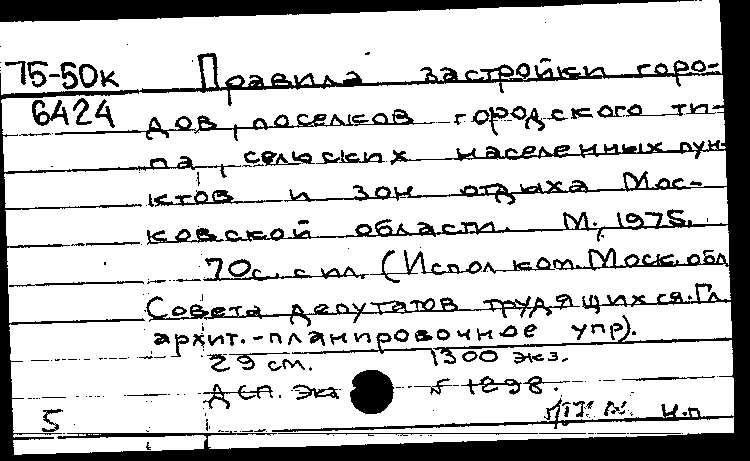 75-50к Правила застройки горо-
6424 дов, поселков городского ти-
па, сельских населенных пун-
ктов и зон отдыха Мос-
ковской области. М., 1975.
70с. с ил. (Испол. ком. Моск. обл
Совета депутатов трудящихся. Гл.
архит.-планировочное упр).
29 см. 1300 экз.
ДСП. Экз № 1898.
5 н.п